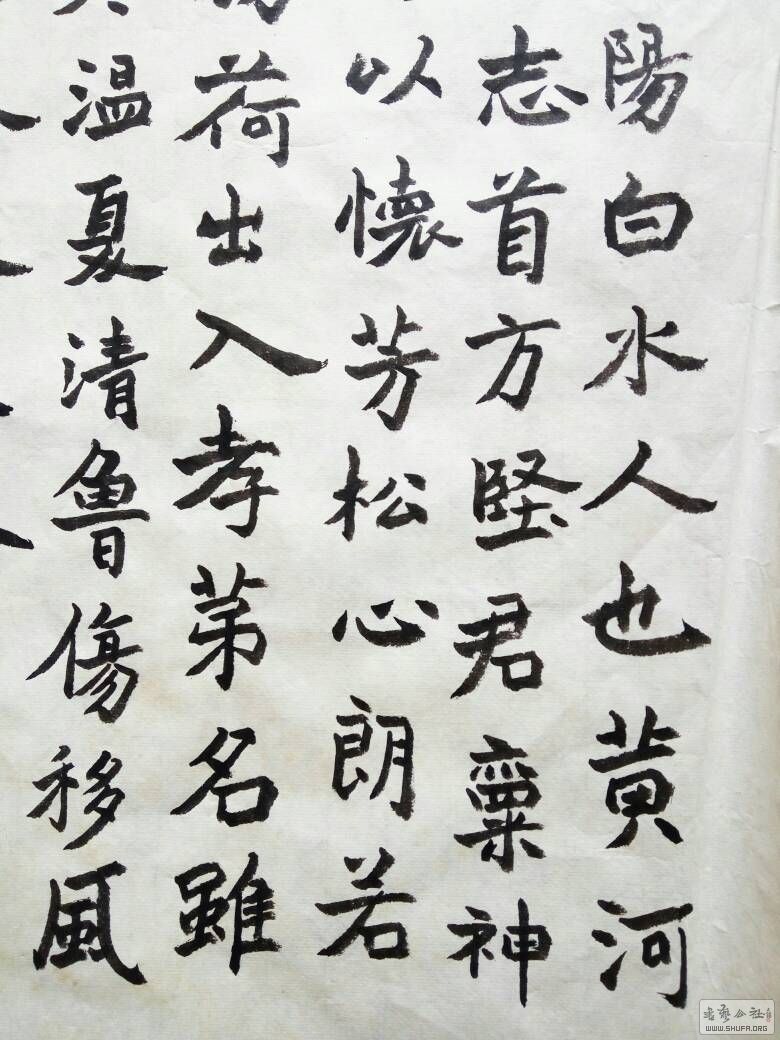 陽白水人也黄河
志首方堅君稟神
以懷芳松心朗若
荷出入孝苐名雖
温夏清魯傷移風
WWW.SHUFA.ORG